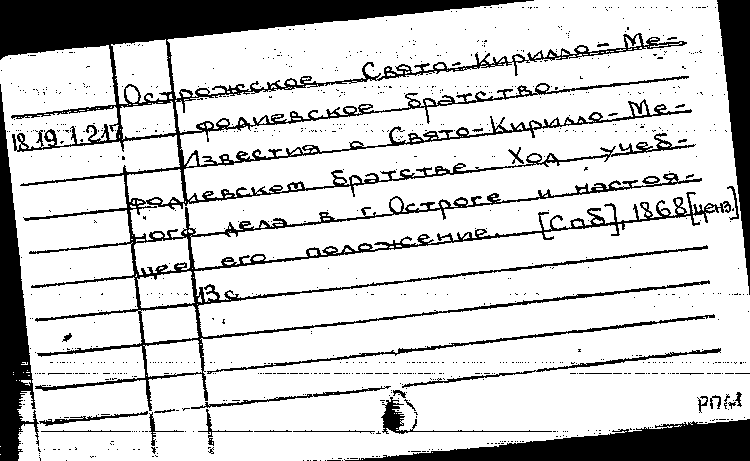 Острожское Свято-Кирилло-Ме-
18.19.1.217 фодиевское братство.
Известия о Свято-Кирилло-Ме-
фодиевском братстве. Ход учеб-
ного дела в г. Остроге и настоя-
щее его положение. [Спб], 1868 [ценз.]
13 с